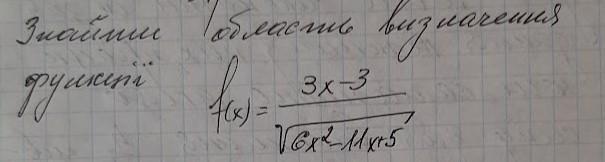 Знайти область визначення
функції
f(x) = \frac{3x-3}{\sqrt{6x^2-11x+5}}